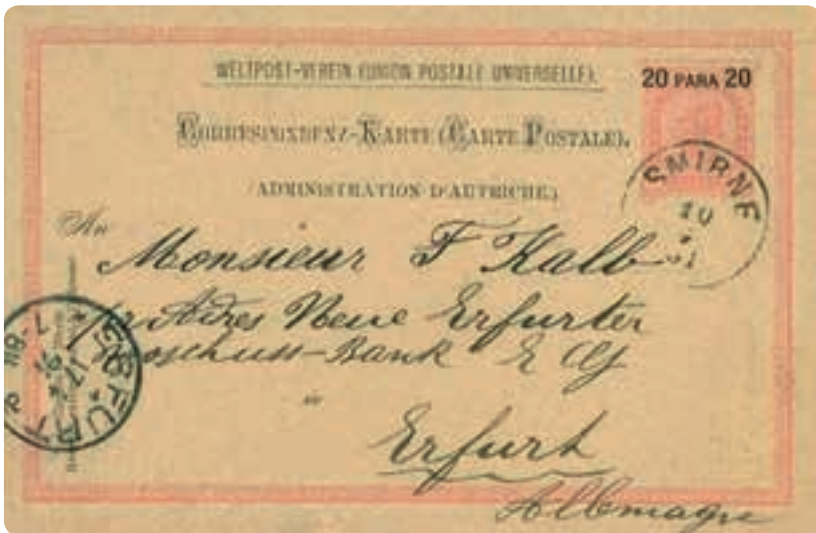 WELTPOST-VEREIN (UNION POSTALE UNIVERSELLE).
20 PARA 20
CORRESPONDENZ-KARTE (CARTE POSTALE).
(ADMINISTRATION D'AUTRICHE.)
SMIRNE
10
An
Monsieur F Kalb
Adres Neue Erfurter
Bank
in
Erfurt
Allemagne
ERFURT